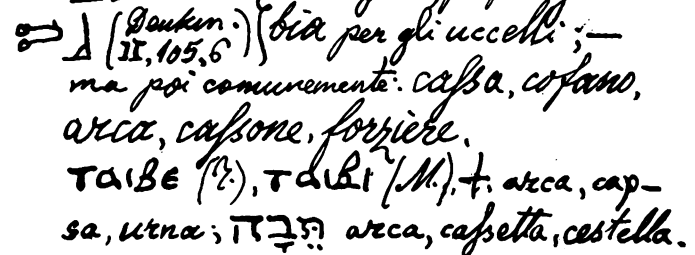 (Denkm. II, 105, 6) bia per gli uccelli; —
ma poi comunemente: cassa, cofano,
arca, cassone, forzière.
ⲧⲁⲓⲃⲉ (), ⲧⲁⲓⲃⲓ (M.), †. arca, cap-
sa, urna; תֵּבָה arca, cassetta, cestella.